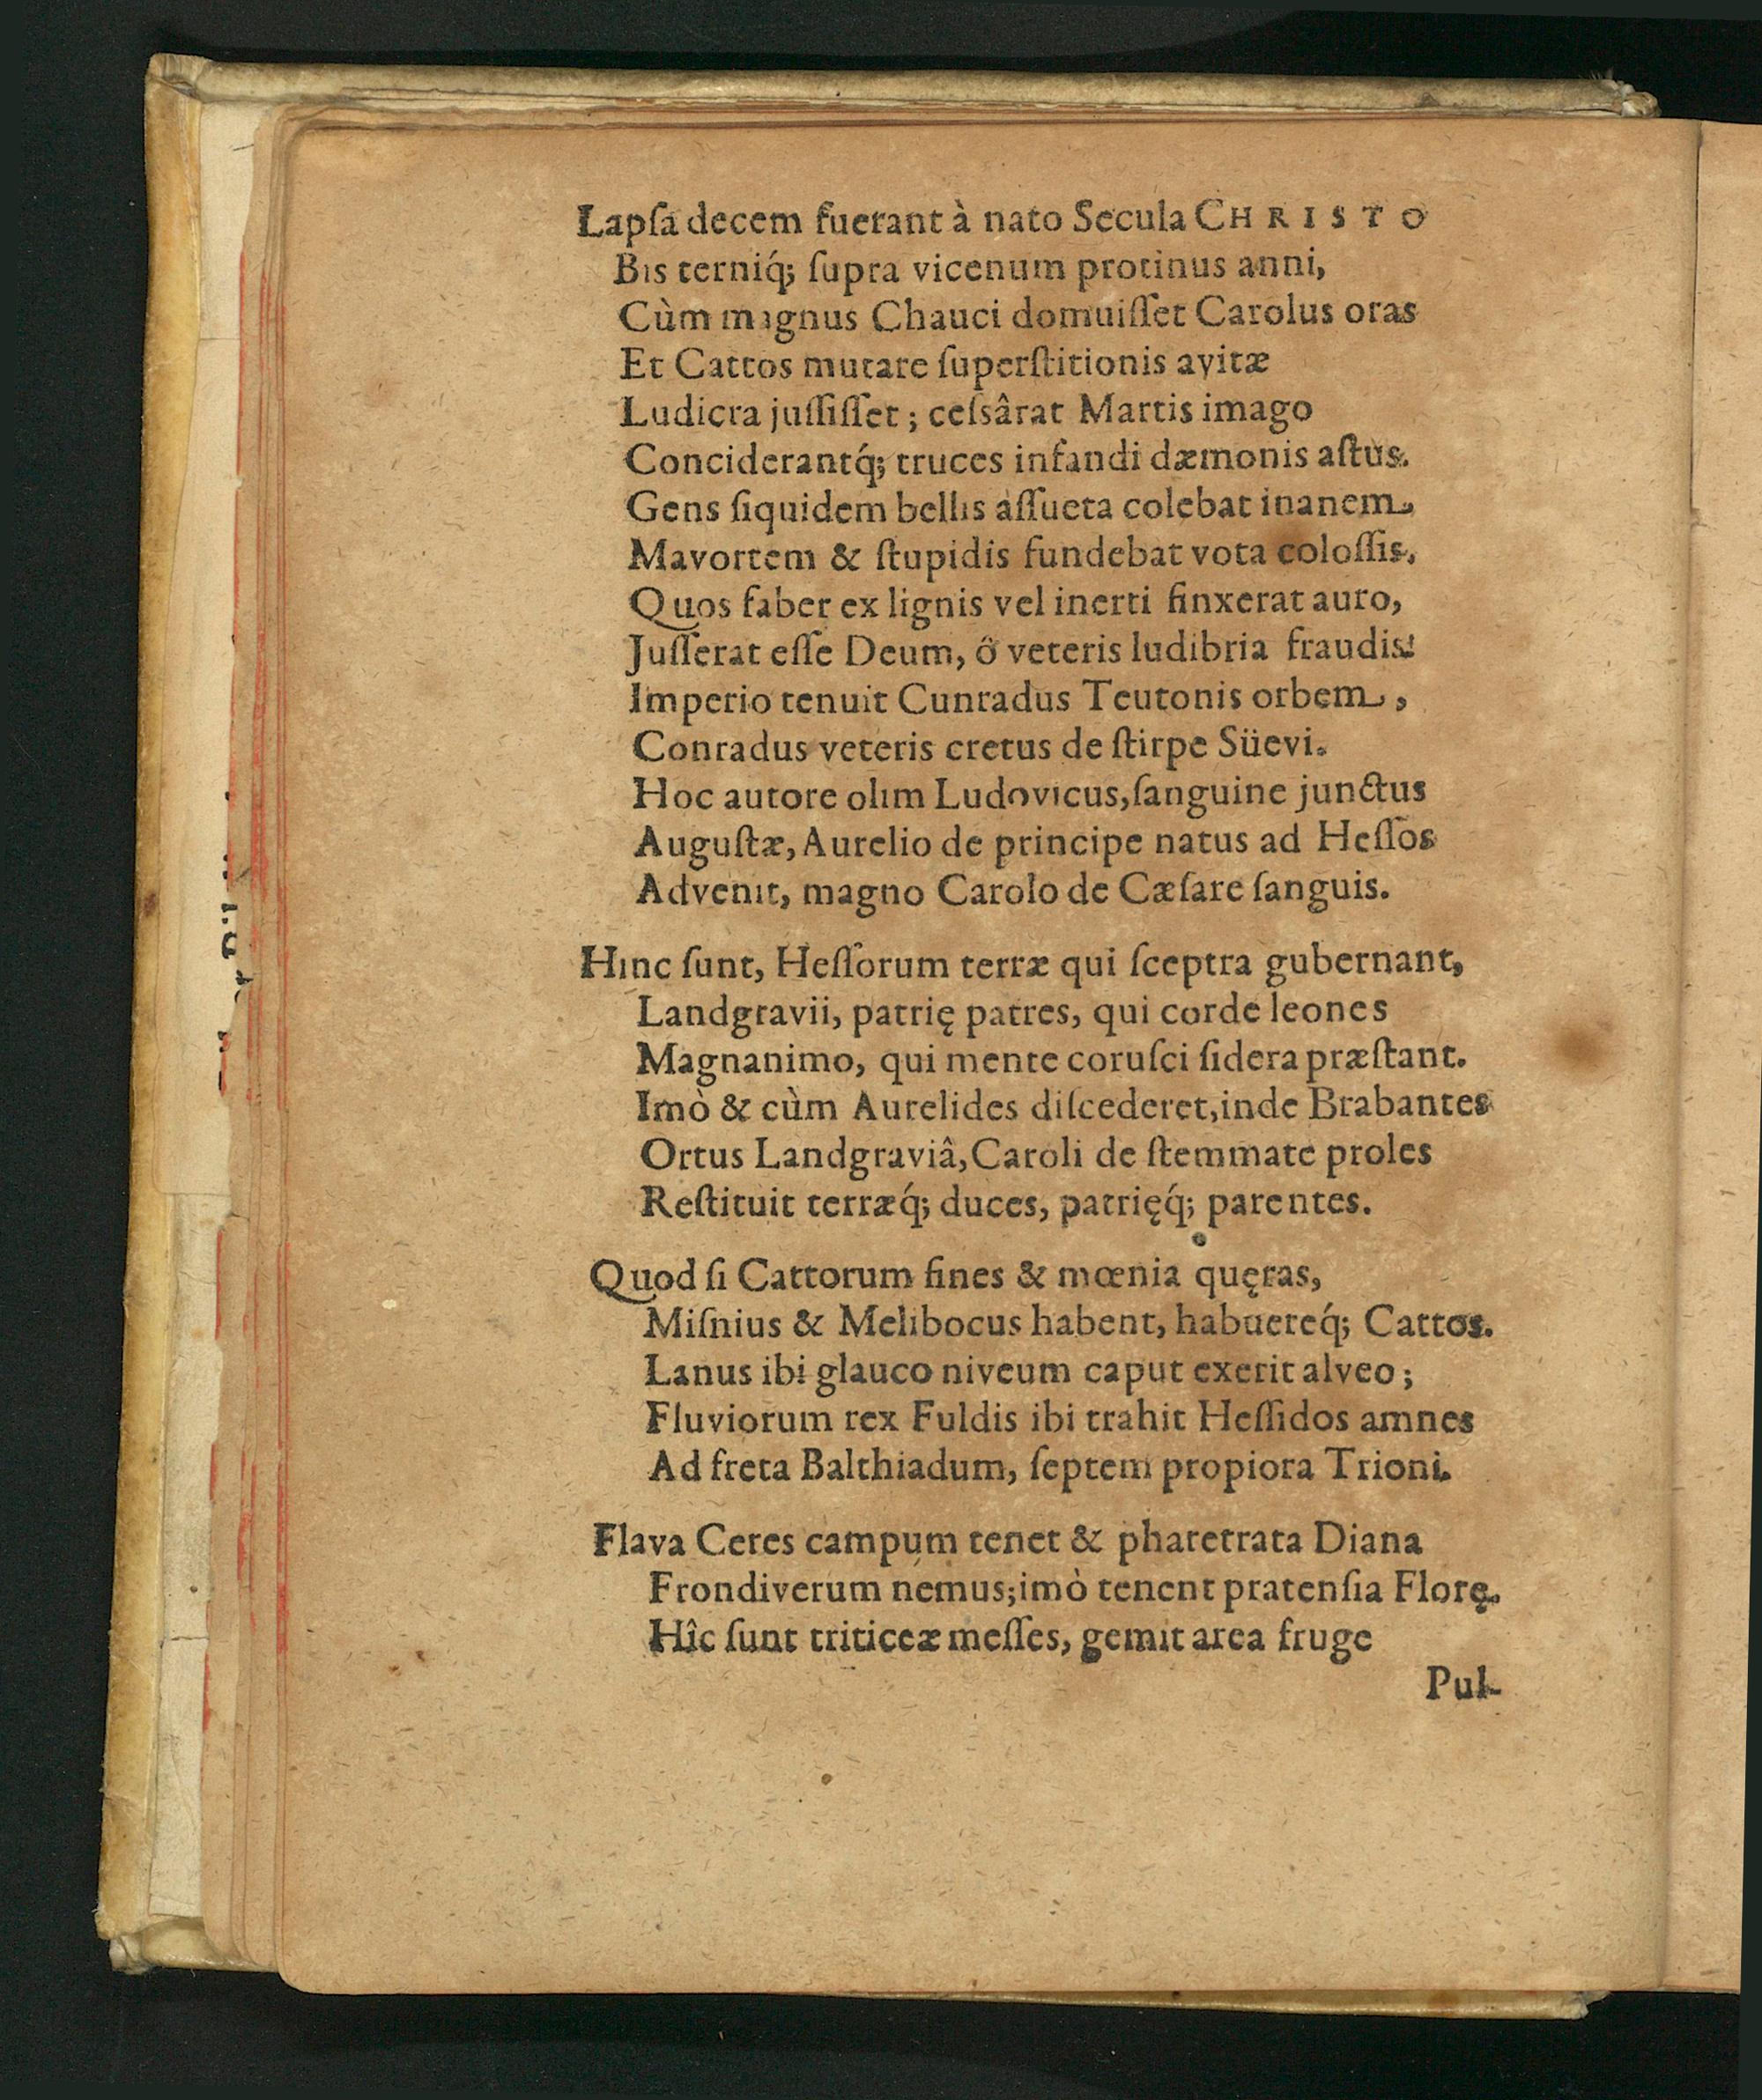 Lapſa decem fuerant à nato Secula CHRISTO
Bis terniq́; ſupra vicenum protinus anni,
Cùm magnus Chauci domuiſſet Carolus oras
Et Cattos mutare ſuperſtitionis avitæ
Ludicra juſſiſſet; ceſsârat Martis imago
Conciderantq́; truces infandi dæmonis aſtus.
Gens ſiquidem bellis aſſueta colebat inanem,
Mavortem & ſtupidis fundebat vota coloſſis,
Quos faber ex lignis vel inerti finxerat auro,
Juſſerat eſſe Deum, ô veteris ludibria fraudis!
Imperio tenuit Cunradus Teutonis orbem,
Conradus veteris cretus de ſtirpe Süevi.
Hoc autore olim Ludovicus, ſanguine junctus
Auguſtæ, Aurelio de principe natus ad Heſſos
Advenit, magno Carolo de Cæſare ſanguis.
Hinc ſunt, Heſſorum terræ qui ſceptra gubernant,
Landgravii, patrię patres, qui corde leones
Magnanimo, qui mente coruſci ſidera præſtant.
Imò & cùm Aurelides diſcederet, inde Brabantes
Ortus Landgraviâ, Caroli de ſtemmate proles
Reſtituit terræq́; duces, patrięq́; parentes.
Quod ſi Cattorum fines & mœnia quęras,
Miſnius & Melibocus habent, habuereq́; Cattos.
Lanus ibi glauco niveum caput exerit alveo;
Fluviorum rex Fuldis ibi trahit Heſſidos amnes
Ad freta Balthiadum, ſeptem propiora Trioni.
Flava Ceres campum tenet & pharetrata Diana
Frondiverum nemus; imò tenent pratenſia Florę.
Hîc ſunt triticeæ meſſes, gemit area fruge
Pul-